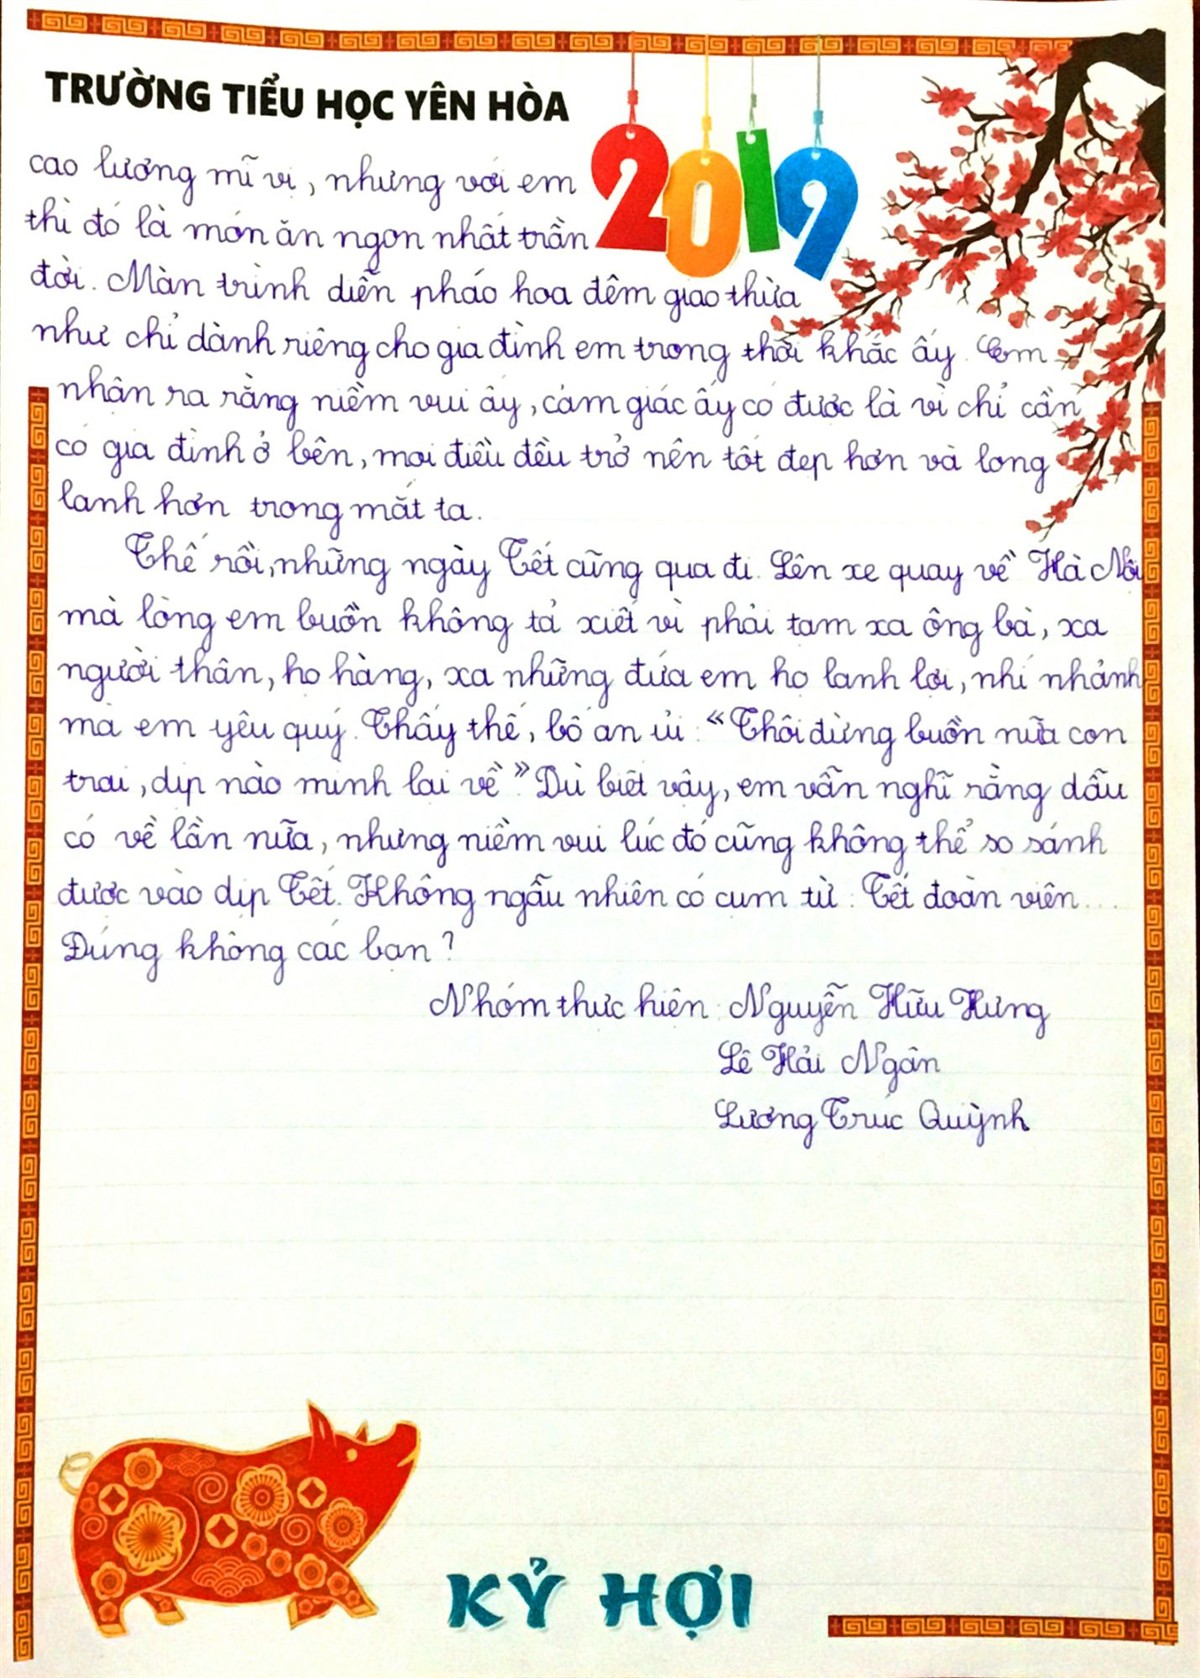 TRƯỜNG TIỂU HỌC YÊN HÒA
2019
cao lương mĩ vị, nhưng với em
thì đó là món ăn ngon nhất trần
đời. Màn trình diễn pháo hoa đêm giao thừa
như chỉ dành riêng cho gia đình em trong thời khắc ấy. Em
nhận ra rằng niềm vui ấy, cảm giác ấy có được là vì chỉ cần
có gia đình ở bên, mọi điều đều trở nên tốt đẹp hơn và long
lanh hơn trong mắt ta.
Thế rồi, những ngày Tết cũng qua đi. Lên xe quay về Hà Nội
mà lòng em buồn không tả xiết vì phải tạm xa ông bà, xa
người thân, họ hàng, xa những đứa em họ lanh lợi, nhí nhảnh
mà em yêu quý. Thấy thế, bố an ủi: “Thôi đừng buồn nữa con
trai, dịp nào mình lại về” Dù biết vậy, em vẫn nghĩ rằng dẫu
có về lần nữa, nhưng niềm vui lúc đó cũng không thể so sánh
được vào dịp Tết. Không ngẫu nhiên có cụm từ: Tết đoàn viên...
Đúng không các bạn?
Nhóm thực hiện: Nguyễn Hữu Hưng
Lê Hải Ngân
Lương Trúc Quỳnh
KỶ HỢI